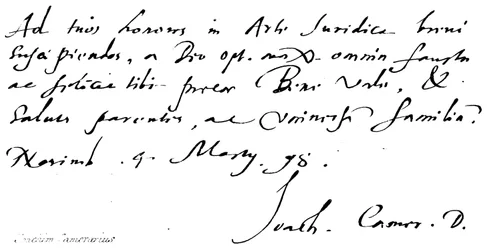 Ad tuos honores in Arte Juridica breui
suscipiendos, a Deo opt. max. omnia fausta
ac felicia tibi precor. Bene Vale, &
Saluta parentes, ac Vniuersam familiam.
Norimb. 9. Martij. 98.
Joach. Camer. D.
Joachim Camerarius